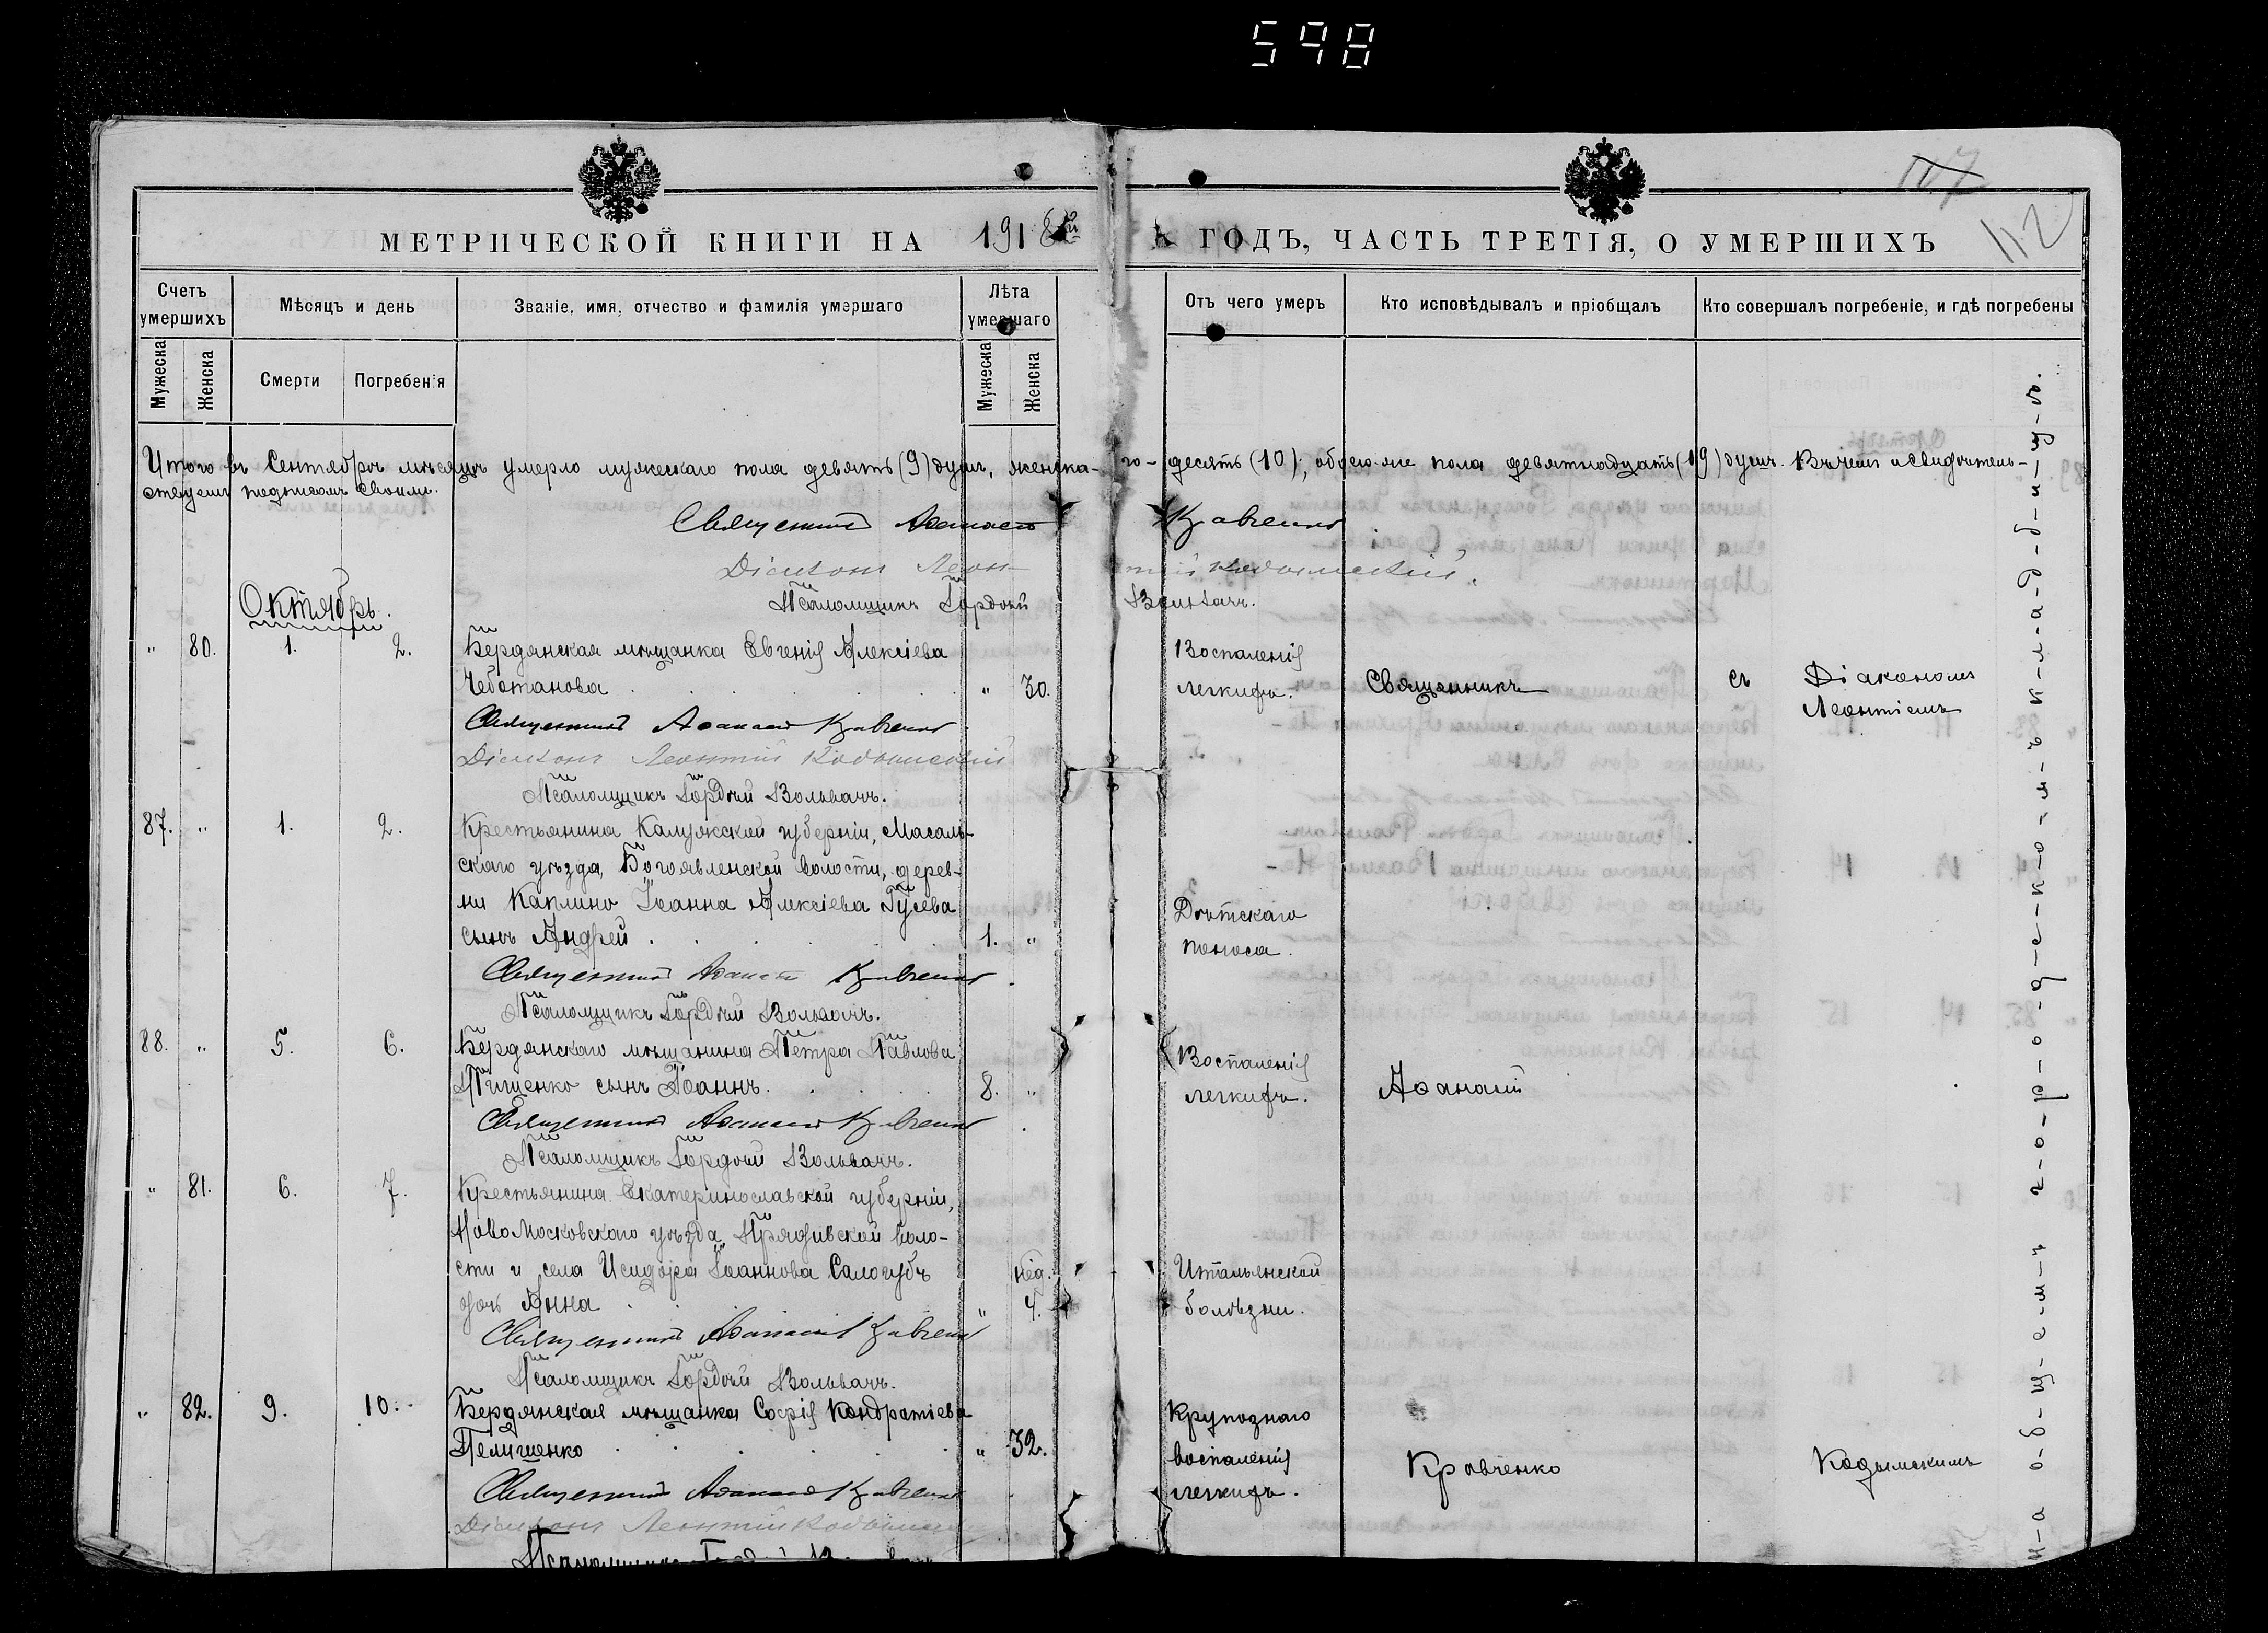 598
107
112
МЕТРИЧЕСКОЙ КНИГИ НА 1918й ГОДЪ, ЧАСТЬ ТРЕТІЯ, О УМЕРШИХЪ
Счетъ умершихъ
Мѣсяцъ и день
Званіе, имя, отчество и фамилія умершаго
Лѣта умершаго
Отъ чего умеръ
Кто исповѣдывалъ и пріобщалъ
Кто совершалъ погребеніе, и гдѣ погребены
Мужеска
Женска
Смерти
Погребенія
Мужеска
Женска
Итого въ Сентябрѣ мѣсяцѣ умерло мужескаго пола девять (9) душъ, женска-го - десять (10), обоего-же пола девятнадцать (19) душъ. Въ чемъ и свидѣтель-
ствуемъ подписомъ своимъ.
Священникъ Аѳанасій Кравченко
Діаконъ Леонтій Кодымскій.
Псаломщикъ Гордѣй Вольвачъ.
Октябрь.
" 80. 1. 2. Бердянская мѣщанка Евгенія Алексіева
Чеботанова " 30.
Воспаленія
легкихъ.
Священникъ
съ Діакономъ
Леонтіемъ
Священникъ Аѳанасій Кравченко
Діаконъ Леонтій Кодымскій
Псаломщикъ Гордѣй Вольвачъ.
87. " 1. 2. Крестьянина Калужской губерніи, Масаль-
скаго уѣзда, Богоявленской волости, дерев-
ни Каплино Іоанна Алексіева Гусева
сынъ Андрей 1. "
Дѣтскаго
поноса.
Священникъ Аѳанасій Кравченко
Псаломщикъ Гордѣй Вольвачъ.
88. " 5. 6. Бердянскаго мѣщанина Петра Павлова
Тищенко сынъ Іоаннъ. 8. "
Воспаленія
легкихъ.
Аѳанасій
Священникъ Аѳанасій Кравченко
Псаломщикъ Гордѣй Вольвачъ.
" 81. 6. 7. Крестьянина Екатеринославской губерніи,
Ново Московскаго уѣзда, Прядивской воло-
сти и села Исидора Іоаннова Салогубъ
дочь Анна " нед. 4.
Итальянской
болѣзни.
Священникъ Аѳанасій Кравченко
Псаломщикъ Гордѣй Вольвачъ.
" 82. 9. 10. Бердянская мѣщанка Софія Кондратіева
Пелишенко " 32.
Крупознаго
воспаленія
легкихъ.
Кравченко
Кодымскимъ
Священникъ Аѳанасій Кравченко
Діаконъ Леонтій Кодымскій
Псаломщикъ
н-а о-б-щ-е-м-ъ г-о-р-о-д-с-к-о-м-ъ к-л-а-д-б-и-щ-ѣ.